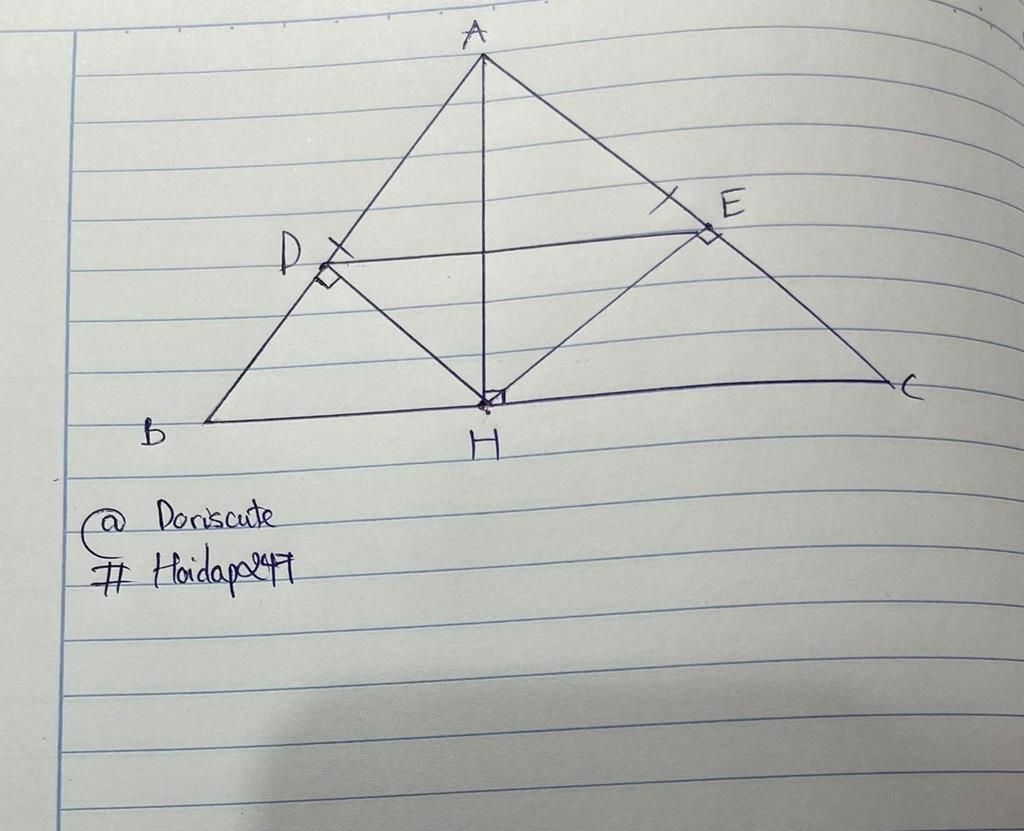 A
D
E
B
H
C
@ Doriscute
# Hoidap247